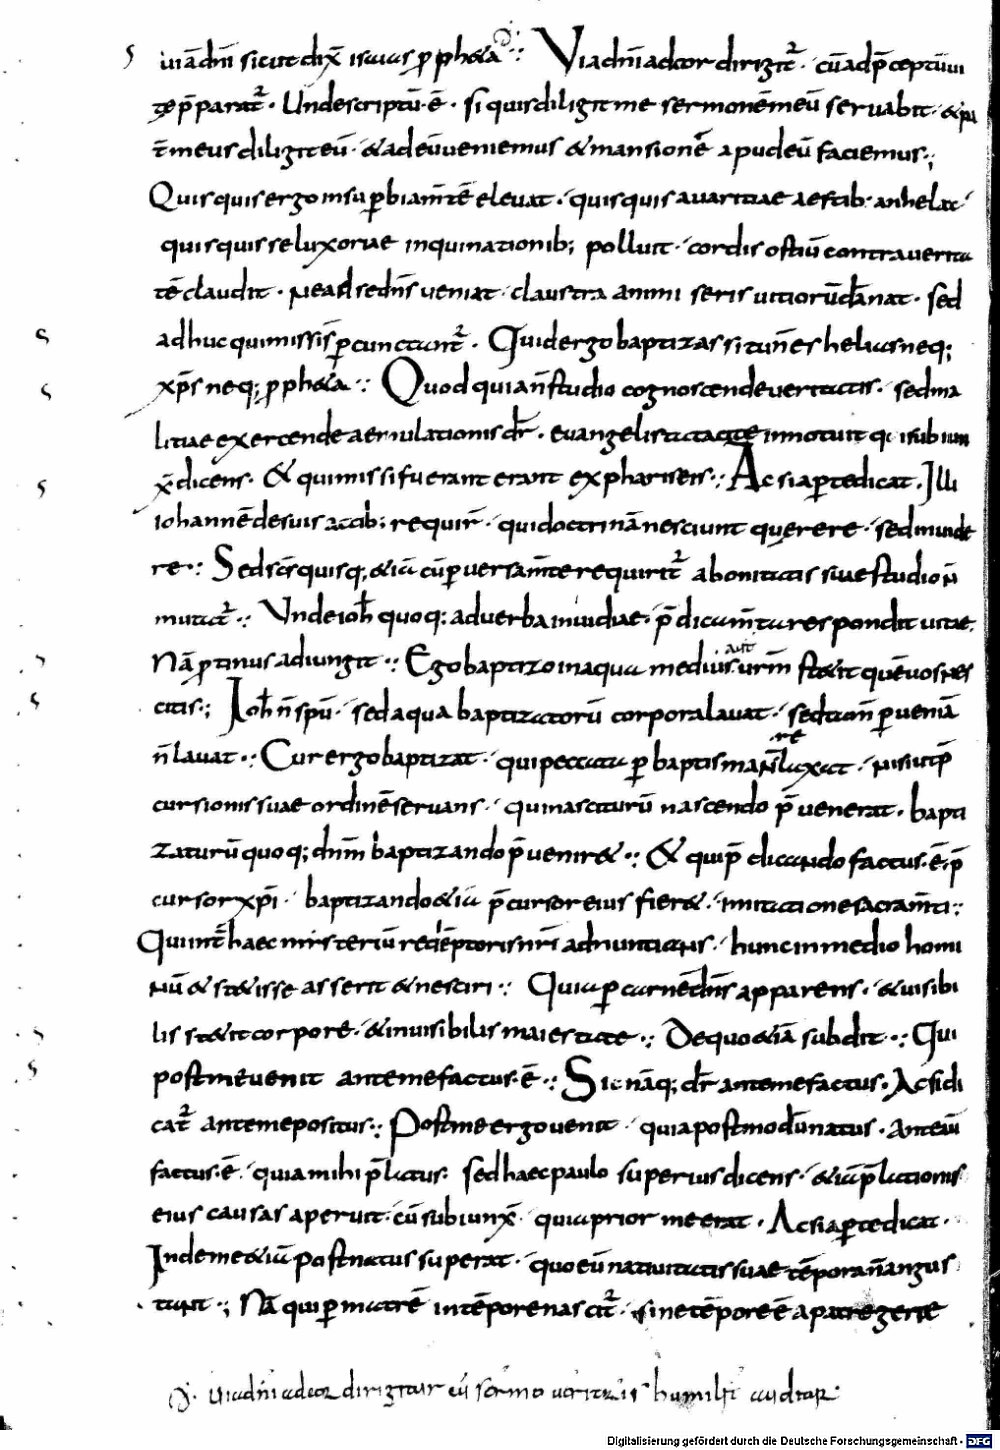 uiā dn̄i sicut dix̄ isaias ꝓpheta ∵ Via dn̄i ad cor dirigit᷑ · cū ad p̄ceptū ui
te p̄parat᷑ · Unde scriptū ē · si quis diligit me sermonē meū seruabit · & pa
t̄ meus diliget eū · & ad eū ueniemus & mansionē apud eū faciemus ·;
Quisquis ergo in suꝑbia m̄tē eleuat · quisquis auaritiae aestib; anhelat
quisquis se luxoriae inquinationib; polluit · cordis ostiū contra uerita
tē claudit · ne ad se dn̄s ueniat · claustra animi seris uitiorū dānat · sed
adhuc qui missi s̄ ꝑcunctant᷑ · Quid ergo baptizas si tu n̄ es helias neq;
xp̄s neq; ꝓpheta ∵ Quod quia n̄ studio cognoscende ueritatis · sed ma
litiae exercende aemulationis dr̄ · euangelista tacite innotuit
x̄ dicens · & qui missi fuerant erant ex phariseis ·: Ac si aꝑte dicat · Illi
iohannē de suis actib; requir̄ · qui doctrinā nesciunt querere · sed inuide
re ·: Sed sc̄s quisq; etiā cū ꝑuersa m̄te requirit᷑ a bonitatis sue studio n̄
mutat᷑ ·: Vnde ioh̄ quoq; ad uerba inuidiae · p̄dicam̄ta respondit uitae.
Nā ꝓtinus adiungit ·: Ego baptizo in aqua medius aut ur̄m stetit quē uos nes
citis ·; Ioh̄ n̄ spū · sed aqua baptizat corporū corpora lauat · sed tam̄ ꝑ ueniā
n̄ lauat ·: Cur ergo baptizat · qui peccata ꝑ baptisma n̄ relaxat · nisi ut p̄
cursionis suae ordinē seruans · qui nasciturū nascendo p̄uenerat · bapti
zaturū quoq; dn̄m baptizando p̄uenir& ·: & qui p̄dicando factus ē p̄
cursor xp̄i · baptizando etiā p̄cursor eius fier& · imitatione sacram̄ti ·:
Qui int̄ haec misteriū redēptoris nr̄i adnuntians · hunc in medio homi
nū & stetisse asserit & nesciri ·: Quia ꝑ carnē dn̄s apparens · & uisibi
lis stetit corpore · & inuisibilis maiestate ·: De quo etiā subdit ·: Qui
post me uenit ante me factus ē ·: Sic nāq; dr̄ ante me factus · Ac si di
cat᷑ ante me positus ·: Post me ergo uenit · quia postmodū natus · Ante
factus ē · quia mihi p̄latus · sed haec paulo superius dicens · etiā p̄lationis
eius causas aperuit · cū subiunx̄ · quia prior me erat · Ac si aꝑte dicat ·
Inde me etiā post natus superat · quo eū natiuitatis suae tēpora n̄ angus
tant ·; Nā qui ꝑ matrē in tēpore nascit᷑ · sine tēpore ē a patre
Uia dn̄i ad cor dirigitur cū sermo ueritatis humilit̄ auditur ·
Digitalisierung gefördert durch die Deutsche Forschungsgemeinschaft - DFG